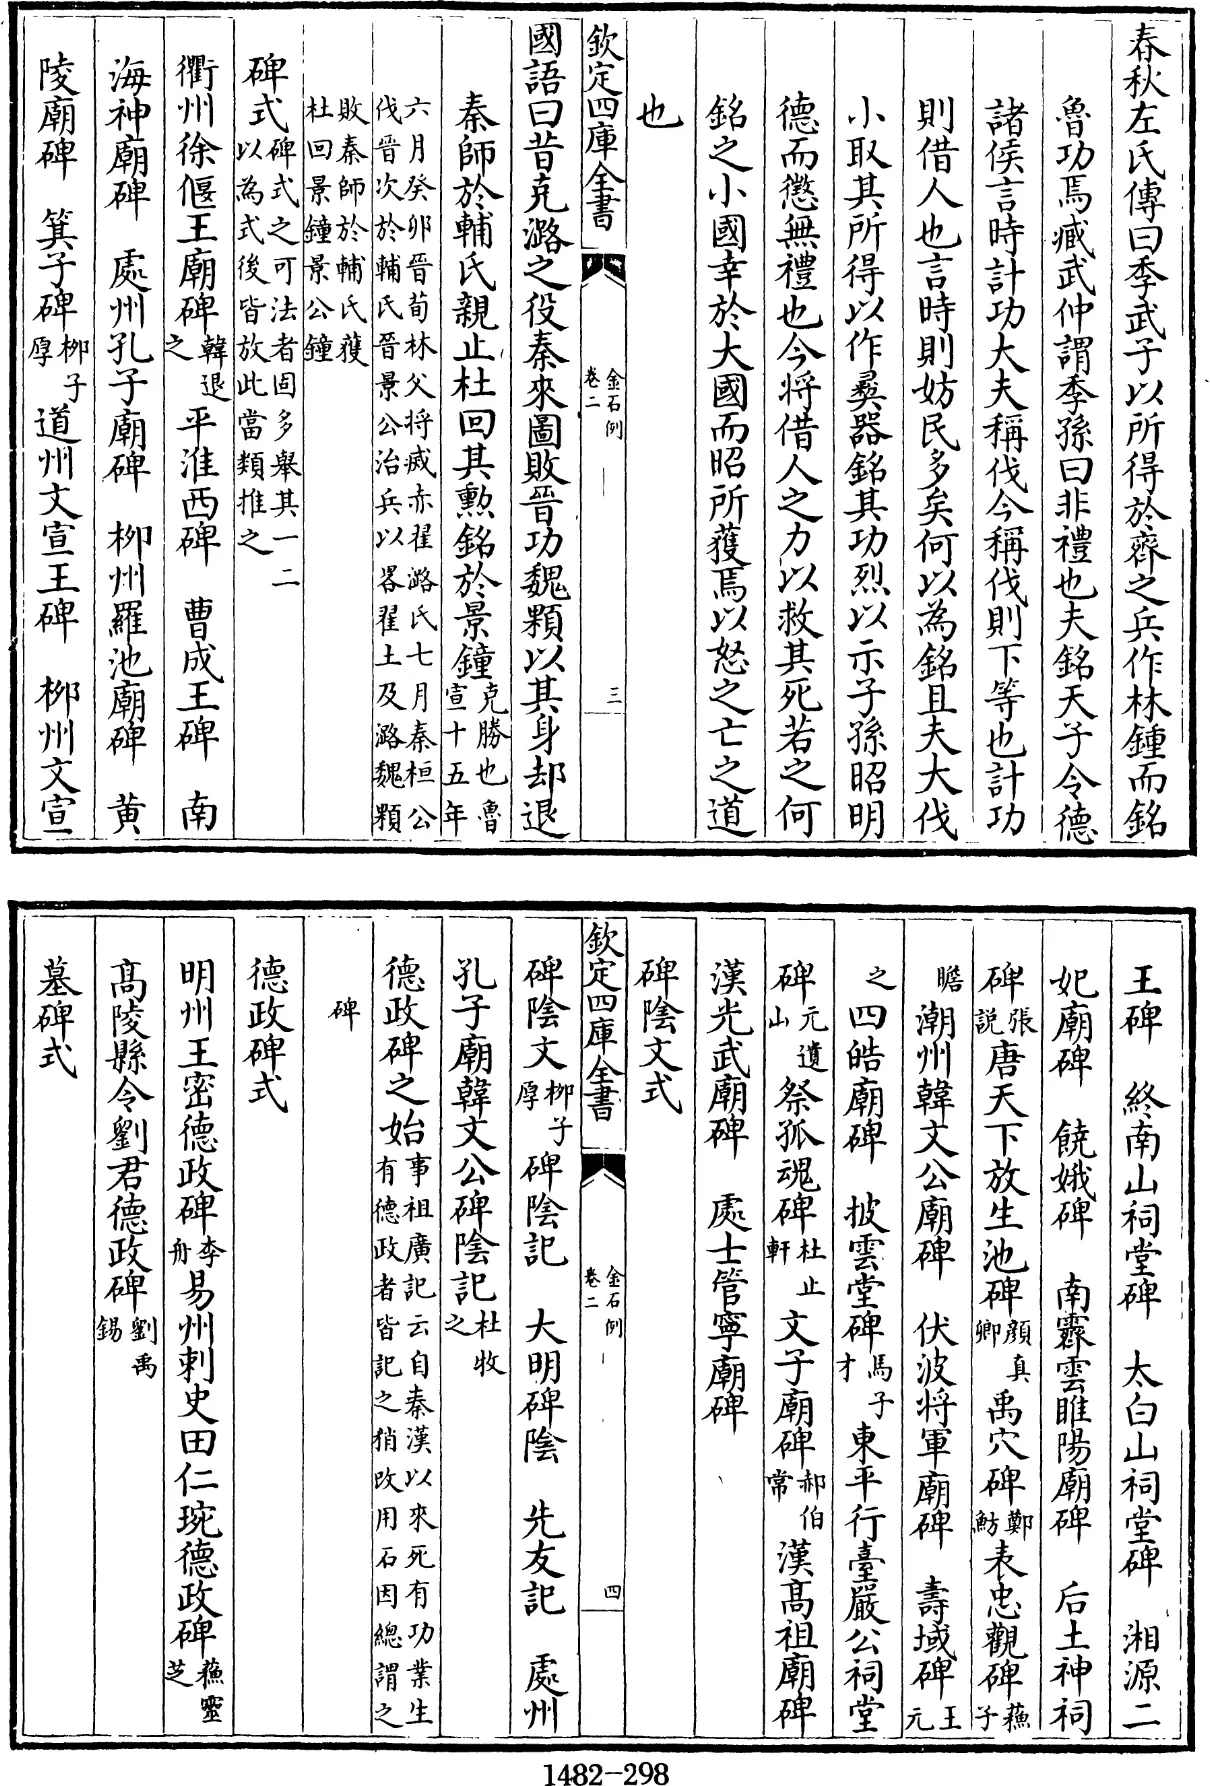 春秋左氏傳曰季武子以所得於齊之兵作林鍾而銘
魯功焉臧武仲謂季孫曰非禮也夫銘天子令德
諸侯言時計功大夫稱伐今稱伐則下等也計功
則借人也言時則妨民多矣何以為銘且夫大伐
小取其所得以作彞器銘其功烈以示子孫昭明
德而懲無禮也今將借人之力以救其死若之何
銘之小國幸於大國而昭所獲焉以怒之亡之道
也
欽定四庫全書
金石例
卷二
三
國語曰昔克潞之役秦來圖敗晉功魏顆以其身却退
秦師於輔氏親止杜回其勲銘於景鐘克勝也魯
宣十五年
六月癸卯晉荀林父將滅赤翟潞氏七月秦桓公
伐晉次於輔氏晉景公治兵以畧翟土及潞魏顆
敗秦師於輔氏獲
杜回景鐘景公鐘
碑式碑式之可法者固多舉其一二
以為式後皆放此當類推之
衢州徐偃王廟碑韓退之 平淮西碑 曹成王碑 南
海神廟碑 處州孔子廟碑 柳州羅池廟碑 黄
陵廟碑 箕子碑柳子厚 道州文宣王碑 柳州文宣
王碑 終南山祠堂碑 太白山祠堂碑 湘源二
妃廟碑 饒娥碑 南霽雲睢陽廟碑 后土神祠
碑張説 唐天下放生池碑顔真卿 禹穴碑鄭魴 表忠觀碑蘇子
瞻 潮州韓文公廟碑 伏波將軍廟碑 壽域碑王元
之 四皓廟碑 披雲堂碑馬子才 東平行臺嚴公祠堂
碑元遺山 祭孤魂碑杜止軒 文子廟碑郝伯常 漢髙祖廟碑
漢光武廟碑 處士管寧廟碑
碑陰文式
欽定四庫全書
金石例
卷二
四
碑陰文柳子厚 碑陰記 大明碑陰 先友記 處州
孔子廟韓文公碑陰記杜牧之
德政碑之始事祖廣記云自秦漢以來死有功業生
有德政者皆記之稍改用石因總謂之
碑
德政碑式
明州王密德政碑李舟 易州刺史田仁琬德政碑蘇靈芝
髙陵縣令劉君德政碑劉禹錫
墓碑式
1482-298